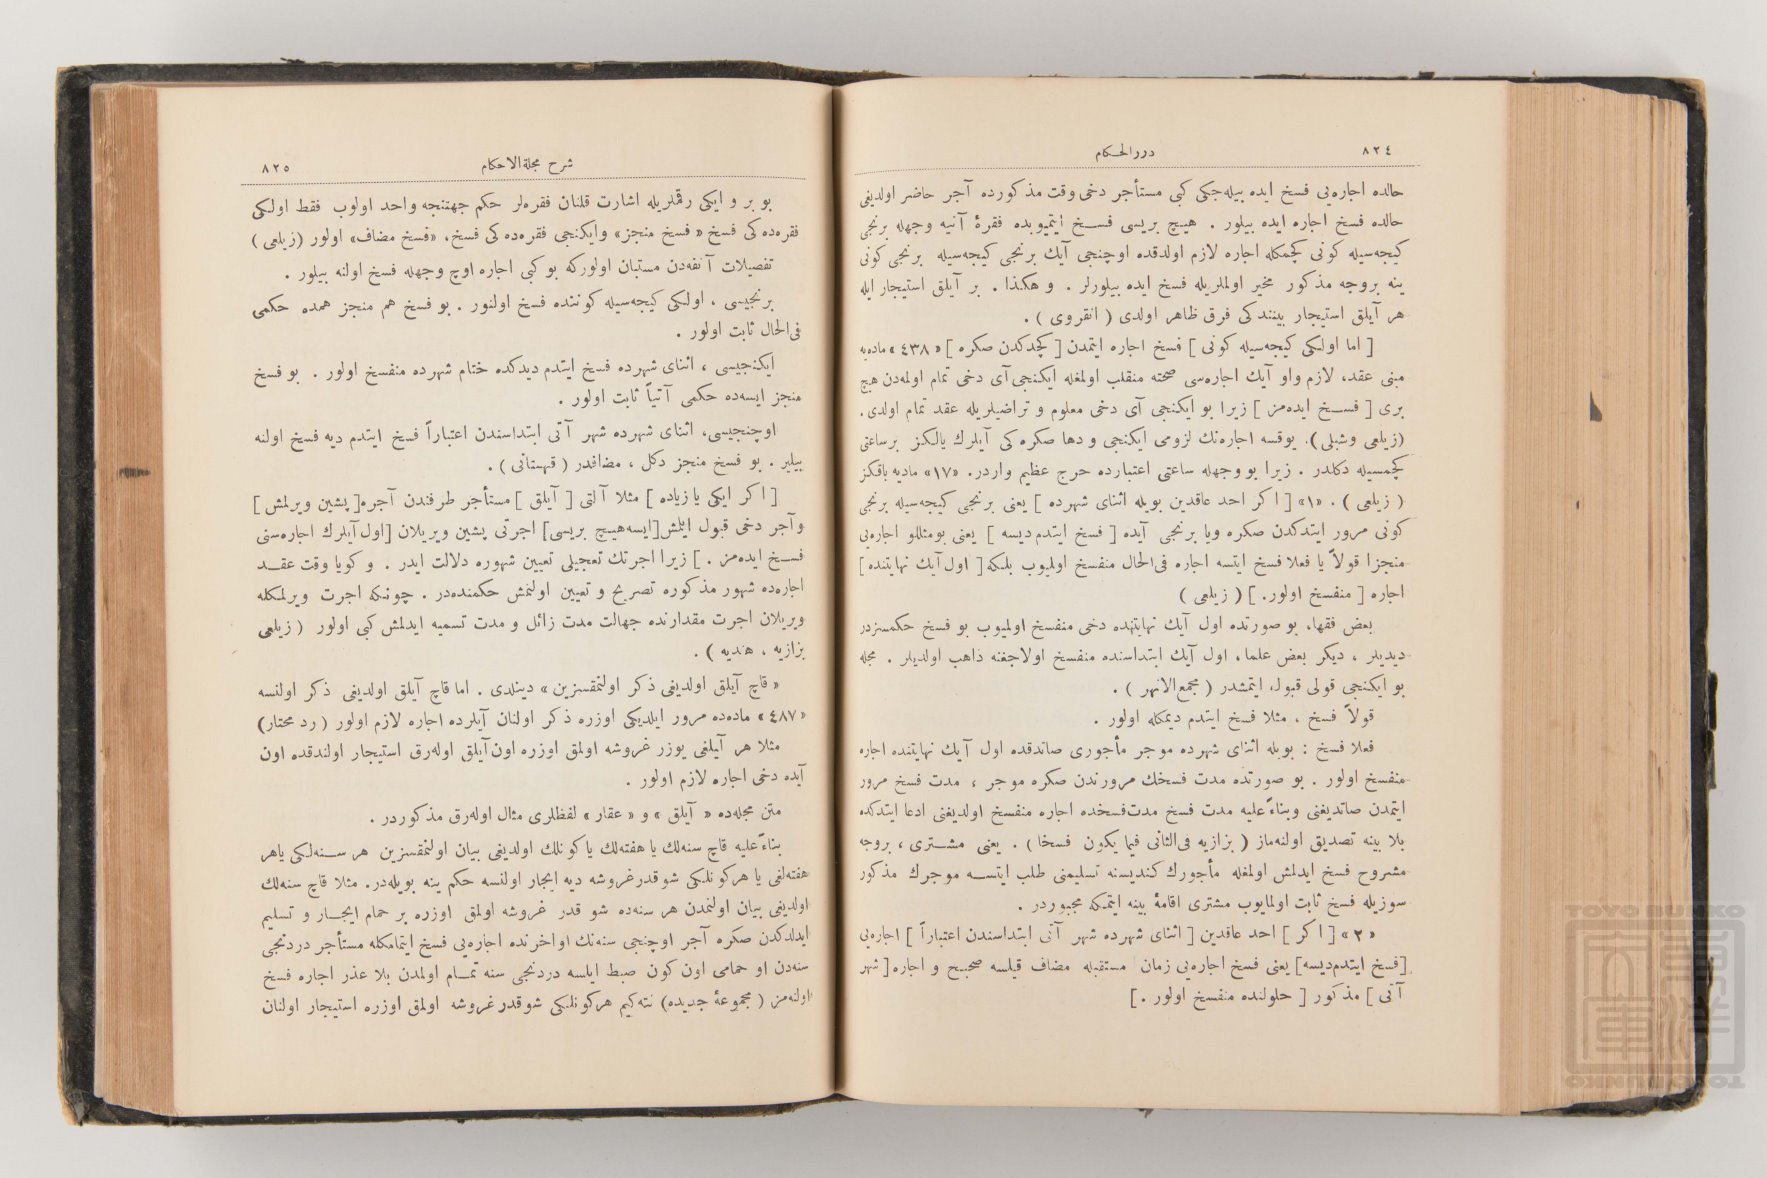 ٨٢٤
دررالحكام
حالده اجاره‌یی فسخ ایده بیله‌جكی كبی مستأجر دخی وقت مذكورده آجر حاضر اولدیغی
حالده فسخ اجاره ایده بیلور . هیچ بریسی فسخ ایتمیوبده فقرۀ آتیه وجهله برنجی
كیجه‌سیله كونی كچمكله اجاره لازم اولدقده اوچنجی آیك برنجی كیجه‌سیله برنجی كونی
ینه بروجه مذكور مخیر اولملریله فسخ ایده بیلورلر . و هكذا . بر آیلق استیجار ایله
هر آیلق استیجار بیننده‌كی فرق ظاهر اولدی ( انقروی ) .
[ اما اولكی كیجه‌سیله كونی ] فسخ اجاره ایتمدن [ كچدكدن صكره ] « ٤٣٨ » ماده‌یه
مبنی عقد، لازم واو آیك اجاره‌سی صحته منقلب اولمغله ایكنجی آی دخی تمام اولمه‌دن هیچ
بری [ فسخ ایده‌مز ] زیرا بو ایكنجی آی دخی معلوم و تراضیلریله عقد تمام اولدی.
(زیلعی وشبلی). یوقسه اجاره‌نك لزومی ایكنجی و دها صكره كی آیلرك یالكز برساعتی
كچمسیله دكلدر . زیرا بو وجهله ساعتی اعتبارده حرج عظیم واردر. «١٧» مادیه باقكز
( زیلعی ) . «١» [ اكر احد عاقدین بویله اثنای شهرده ] یعنی برنجی كیجه‌سیله برنجی
كونی مرور ایتدكدن صكره ویا برنجی آیده [ فسخ ایتدم دیسه ] یعنی بومثللو اجاره‌یی
منجزا قولاً یا فعلا فسخ ایتسه اجاره فی‌الحال منفسخ اولمیوب بلكه [ اول آیك نهایتنده ]
اجاره [ منفسخ اولور. ] ( زیلعی )
بعض فقها، بو صورتده اول آیك نهایتنده دخی منفسخ اولمیوب بو فسخ حكمسزدر
دیدیلر ، دیكر بعض علما، اول آیك ابتداسنده منفسخ اولاجغنه ذاهب اولدیلر . مجله
بو ایكنجی قولی قبول، ایتمشدر ( مجمع‌الانهر ) .
قولاً فسخ ، مثلا فسخ ایتدم دیمكله اولور .
فعلا فسخ : بویله اثنای شهرده موجر مأجوری صاتدقده اول آیك نهایتنده اجاره
منفسخ اولور . بو صورتده مدت فسخك مرورندن صكره موجر ، مدت فسخ مرور
ایتمدن صاتدیغنی وبناءً علیه مدت فسخ مدت‌فسخده اجاره منفسخ اولدیغنی ادعا ایتدكده
بلا بینه تصدیق اولنه‌ماز ( بزازیه فی‌الثانی فیما یكون فسخا ) . یعنی مشتری ، بروجه
مشروح فسخ ایدلمش اولمغله مأجورك كندیسنه تسلیمنی طلب ایتسه موجرك مذكور
سوزیله فسخ ثابت اولمایوب مشتری اقامۀ بینه ایتمكه مجبوردر .
« ٢ » [ اكر ] احد عاقدین [ اثنای شهرده شهر آتی ابتداسندن اعتباراً ] اجاره‌یی
[فسخ ایتدم‌دیسه] یعنی فسخ اجاره‌یی زمان مستقبله مضاف قیلسه صحیح و اجاره [ شهر
آتی ] مذكور [ حلولنده منفسخ اولور . ]
شرح مجلة الاحكام
٨٢٥
بو بر و ایكی رقملریله اشارت قلنان فقره‌لر حكم جهتنجه واحد اولوب فقط اولكی
فقره‌ده كی فسخ « فسخ منجز» وایكنجی فقره‌ده كی فسخ، «فسخ مضاف» اولور (زیلعی )
تفصیلات آنفه‌دن مستبان اولوركه بو كبی اجاره اوچ وجهله فسخ اولنه بیلور .
برنجیسی ، اولكی كیجه‌سیله كوننده فسخ اولنور . بو فسخ هم منجز همده حكمی
فی‌الحال ثابت اولور .
ایكنجیسی ، اثنای شهرده فسخ ایتدم دیدكده ختام شهرده منفسخ اولور . بو فسخ
منجز ایسه‌ده حكمی آتیاً ثابت اولور .
اوچنجیسی، اثنای شهرده شهر آتی ابتداسندن اعتباراً فسخ ایتدم دیه فسخ اولنه
بیلیر . بو فسخ منجز دكل ، مضافدر ( قهستانی ) .
[ اكر ایكی یا زیاده ] مثلا آلتی [ آیلق ] مستأجر طرفندن آجره [پشین ویرلمش]
وآجر دخی قبول ایلمش [ایسه هیچ بریسی] اجرتی پشین ویریلان [اول آیلرك اجاره‌سنی
فسخ ایده‌مز . ] زیرا اجرتك تعجیلی تعیین شهوره دلالت ایدر . و كویا وقت عقد
اجاره‌ده شهور مذكوره تصریح و تعیین اولنمش حكمنده‌در . چونكه اجرت ویرلمكله
ویریلان اجرت مقدارنده جهالت مدت زائل و مدت تسمیه ایدلمش كبی اولور ( زیلعی
بزازیه ، هندیه ) .
« قاچ آیلق اولدیغی ذكر اولنمقسزین » دینلدی . اما قاچ آیلق اولدیغی ذكر اولنسه
« ٤٨٧ » ماده‌ده مرور ایلدیكی اوزره ذكر اولنان آیلرده اجاره لازم اولور ( رد محتار)
مثلا هر آیلغی یوزر غروشه اولمق اوزره اون آیلق اوله‌رق استیجار اولندقده اون
آیده دخی اجاره لازم اولور .
متن مجله‌ده « آیلق » و « عقار » لفظلری مثال اوله‌رق مذكوردر .
بناءً علیه قاچ سنه‌لك یا هفته‌لك یا كونلك اولدیغی بیان اولنمقسزین هر سنه‌لكی یاهر
هفته‌لغی یا هركونلكی شو قدرغروشه دیه ایجار اولنسه حكم ینه بویله‌در. مثلا قاچ سنه‌لك
اولدیغی بیان اولنمدن هر سنه‌ده شو قدر غروشه اولمق اوزره بر حمام ایجار و تسلیم
ایدلدكدن صكره آجر اوچنجی سنه‌نك اواخرنده اجاره‌یی فسخ ایتمامكله مستأجر دردنجی
سنه‌دن او حمامی اون كون ضبط ایلسه دردنجی سنه تمام اولمدن بلا عذر اجاره فسخ
اولنه‌مز ( مجموعۀ جدیده) نته‌كیم هركونلكی شوقدر غروشه اولمق اوزره استیجار اولنان
TOYO BUNKO